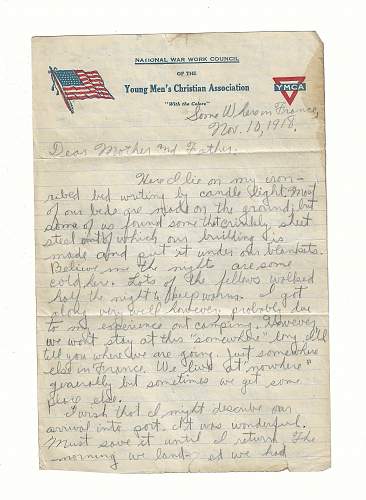 NATIONAL WAR WORK COUNCIL
OF THE
Young Men's Christian Association
"With the Colors"
YMCA
Some Where in France,
Nov. 10, 1918.
Dear Mother and Father.
Here I lie on my iron-
ribed bed writing by candle light. Most
of our beds are made on the ground, but
some of us found some that crinkly sheet
steel out of which our building is
made and put it under our blankets.
Believe me the nights are some
cold here. Lots of the fellows walked
half the night to keep warm. I got
along very well however, probably due
to my experience out camping. However
we won't stay at this "somewhere" long. I'll
tell you where we are going. Just somewhere
else in France. We live at "nowhere"
generally but sometimes we get some
place else.
I wish that I might describe our
arrival into port. It was wonderful.
Must save it until I return. The
morning we land- ed we had